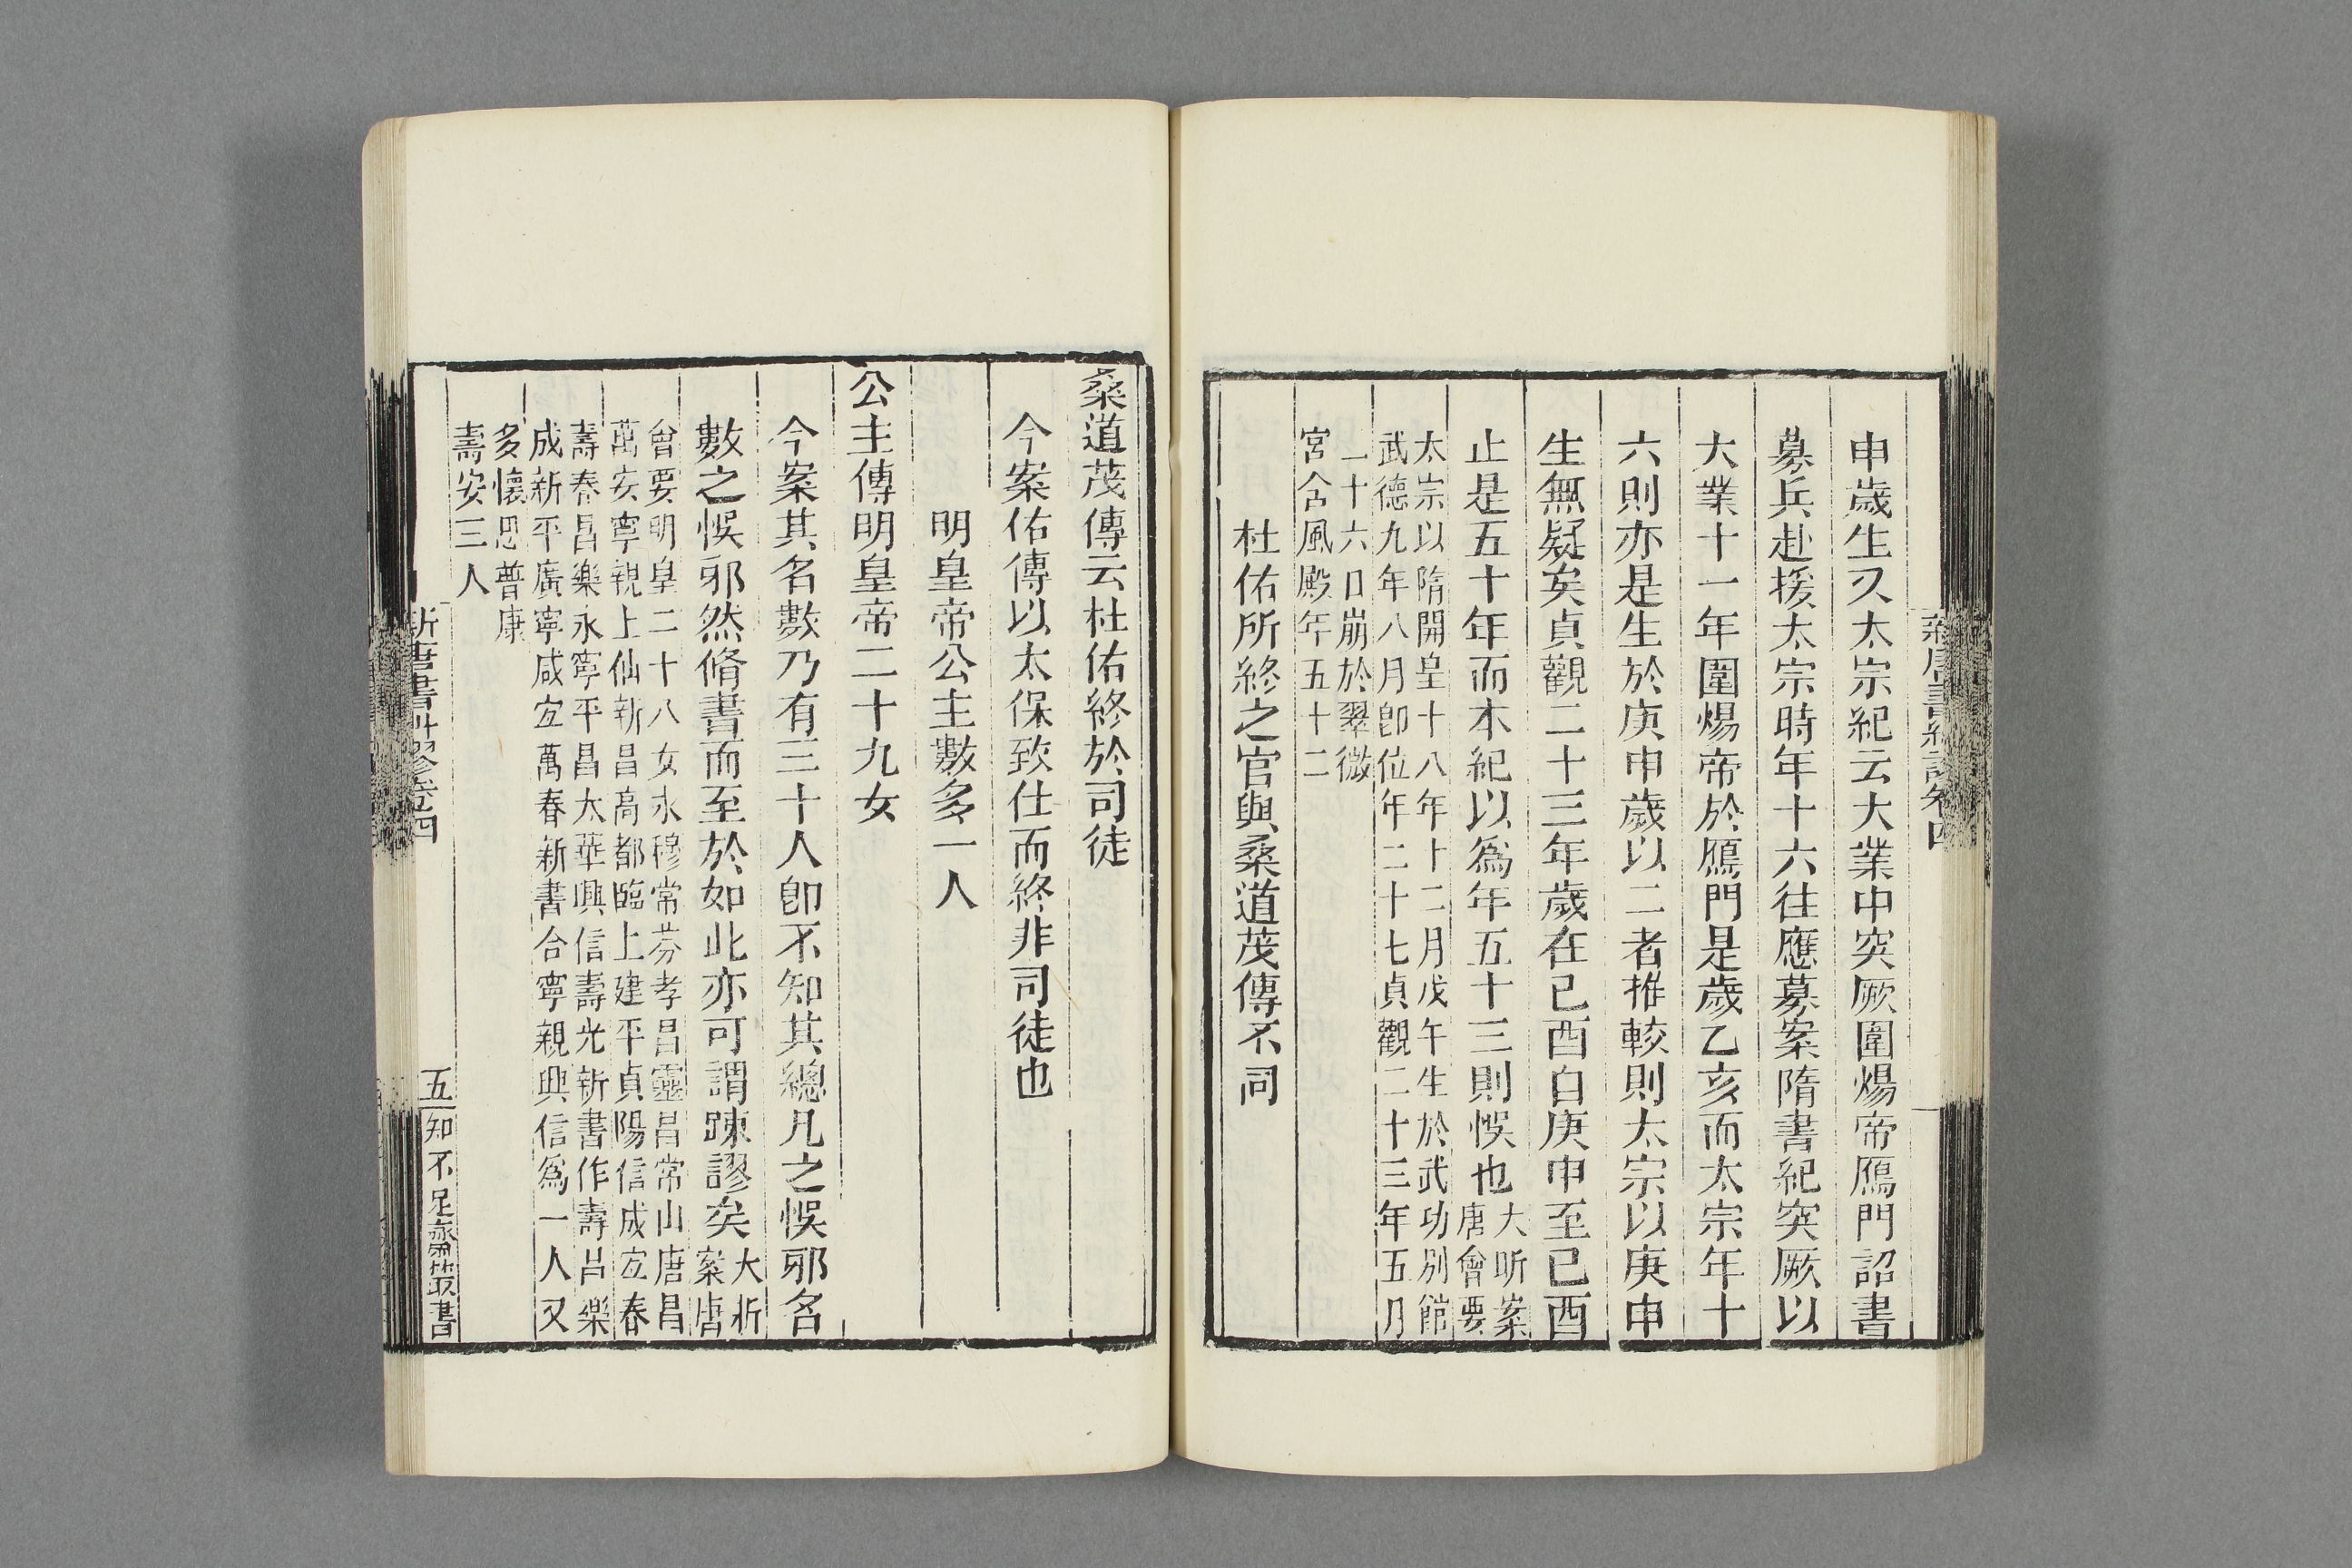 申歲生又太宗紀云大業中突厥圍煬帝鴈門詔書
募兵赴援太宗時年十六往應募案隋書紀突厥以
大業十一年圍煬帝於鴈門是歲乙亥而太宗年十
六則亦是生於庚申歲以二者推較則太宗以庚申
生無疑矣貞觀二十三年歲在已酉自庚申至已酉
止是五十年而本紀以爲年五十三則悞也大昕案
唐會要
太宗以隋開皇十八年十二月戊午生於武功別館
武德九年八月卽位年二十七貞觀二十三年五月
二十六日崩於翠微
宮含風殿年五十二
杜佑所終之官與桑道茂傳不同
桑道茂傳云杜佑終於司徒
今案佑傳以太保致仕而終非司徒也
明皇帝公主數多一人
公主傳明皇帝二十九女
今案其名數乃有三十人卽不知其總凡之悞邪名
數之悞邪然脩書而至於如此亦可謂踈謬矣大昕
案唐
會要明皇二十八女永穆常芬孝昌靈昌常山唐昌
萬安寧親上仙新昌高都臨上建平貞陽信成宜春
壽春昌樂永寧平昌太華興信壽光新書作壽昌樂
成新平廣寧咸宜萬春新書合寧親興信爲一人又
多懷思普康
壽安三人
新唐書糾謬卷四
五
知不足齋叢書